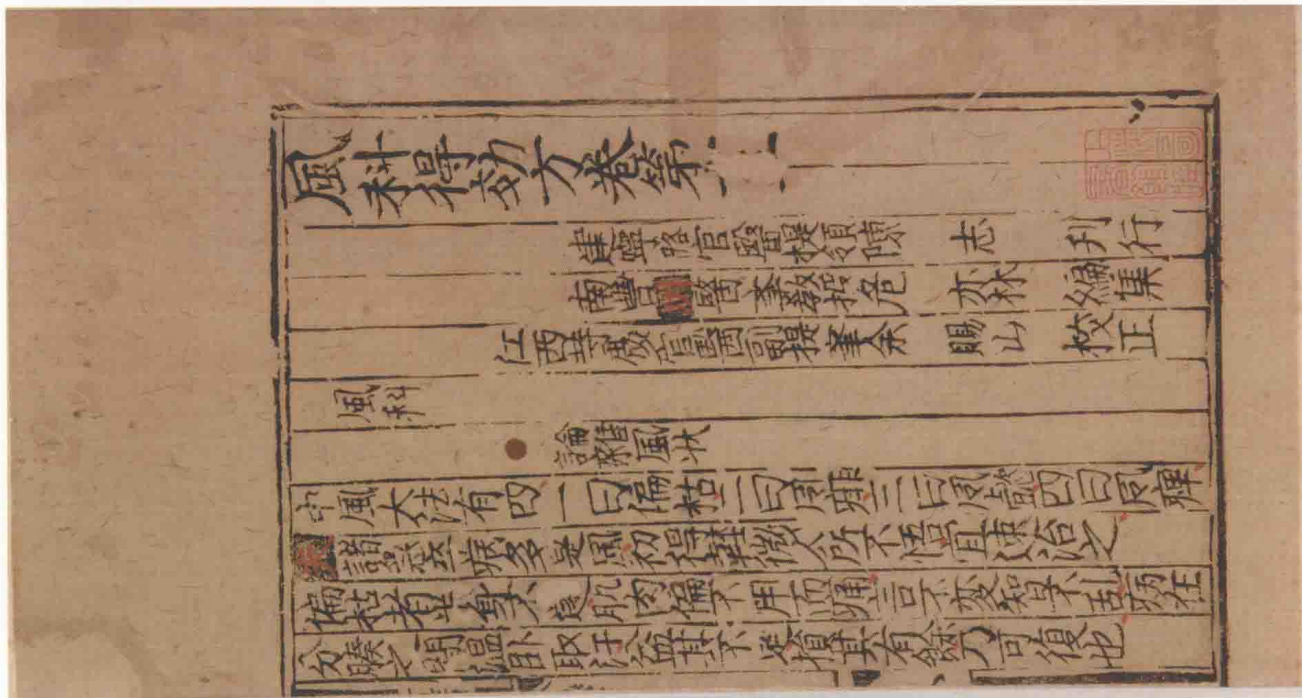 風科得効方卷第
建寧路官醫提領陳 志 刊行
南豐州醫學教授危 亦林 編集
江西等處官醫副提舉余 賜山 校正
風科
論雜風狀
中風大法有四一曰偏枯二曰風痱三曰風懿四曰風痺
諸急卒病多是風初得輕微人所不悟宜速治之
偏枯者半身不遂肌肉偏不用而痛言不變智不乱病在
分腠之間溫卧取汗益其不足損其有餘乃可復也